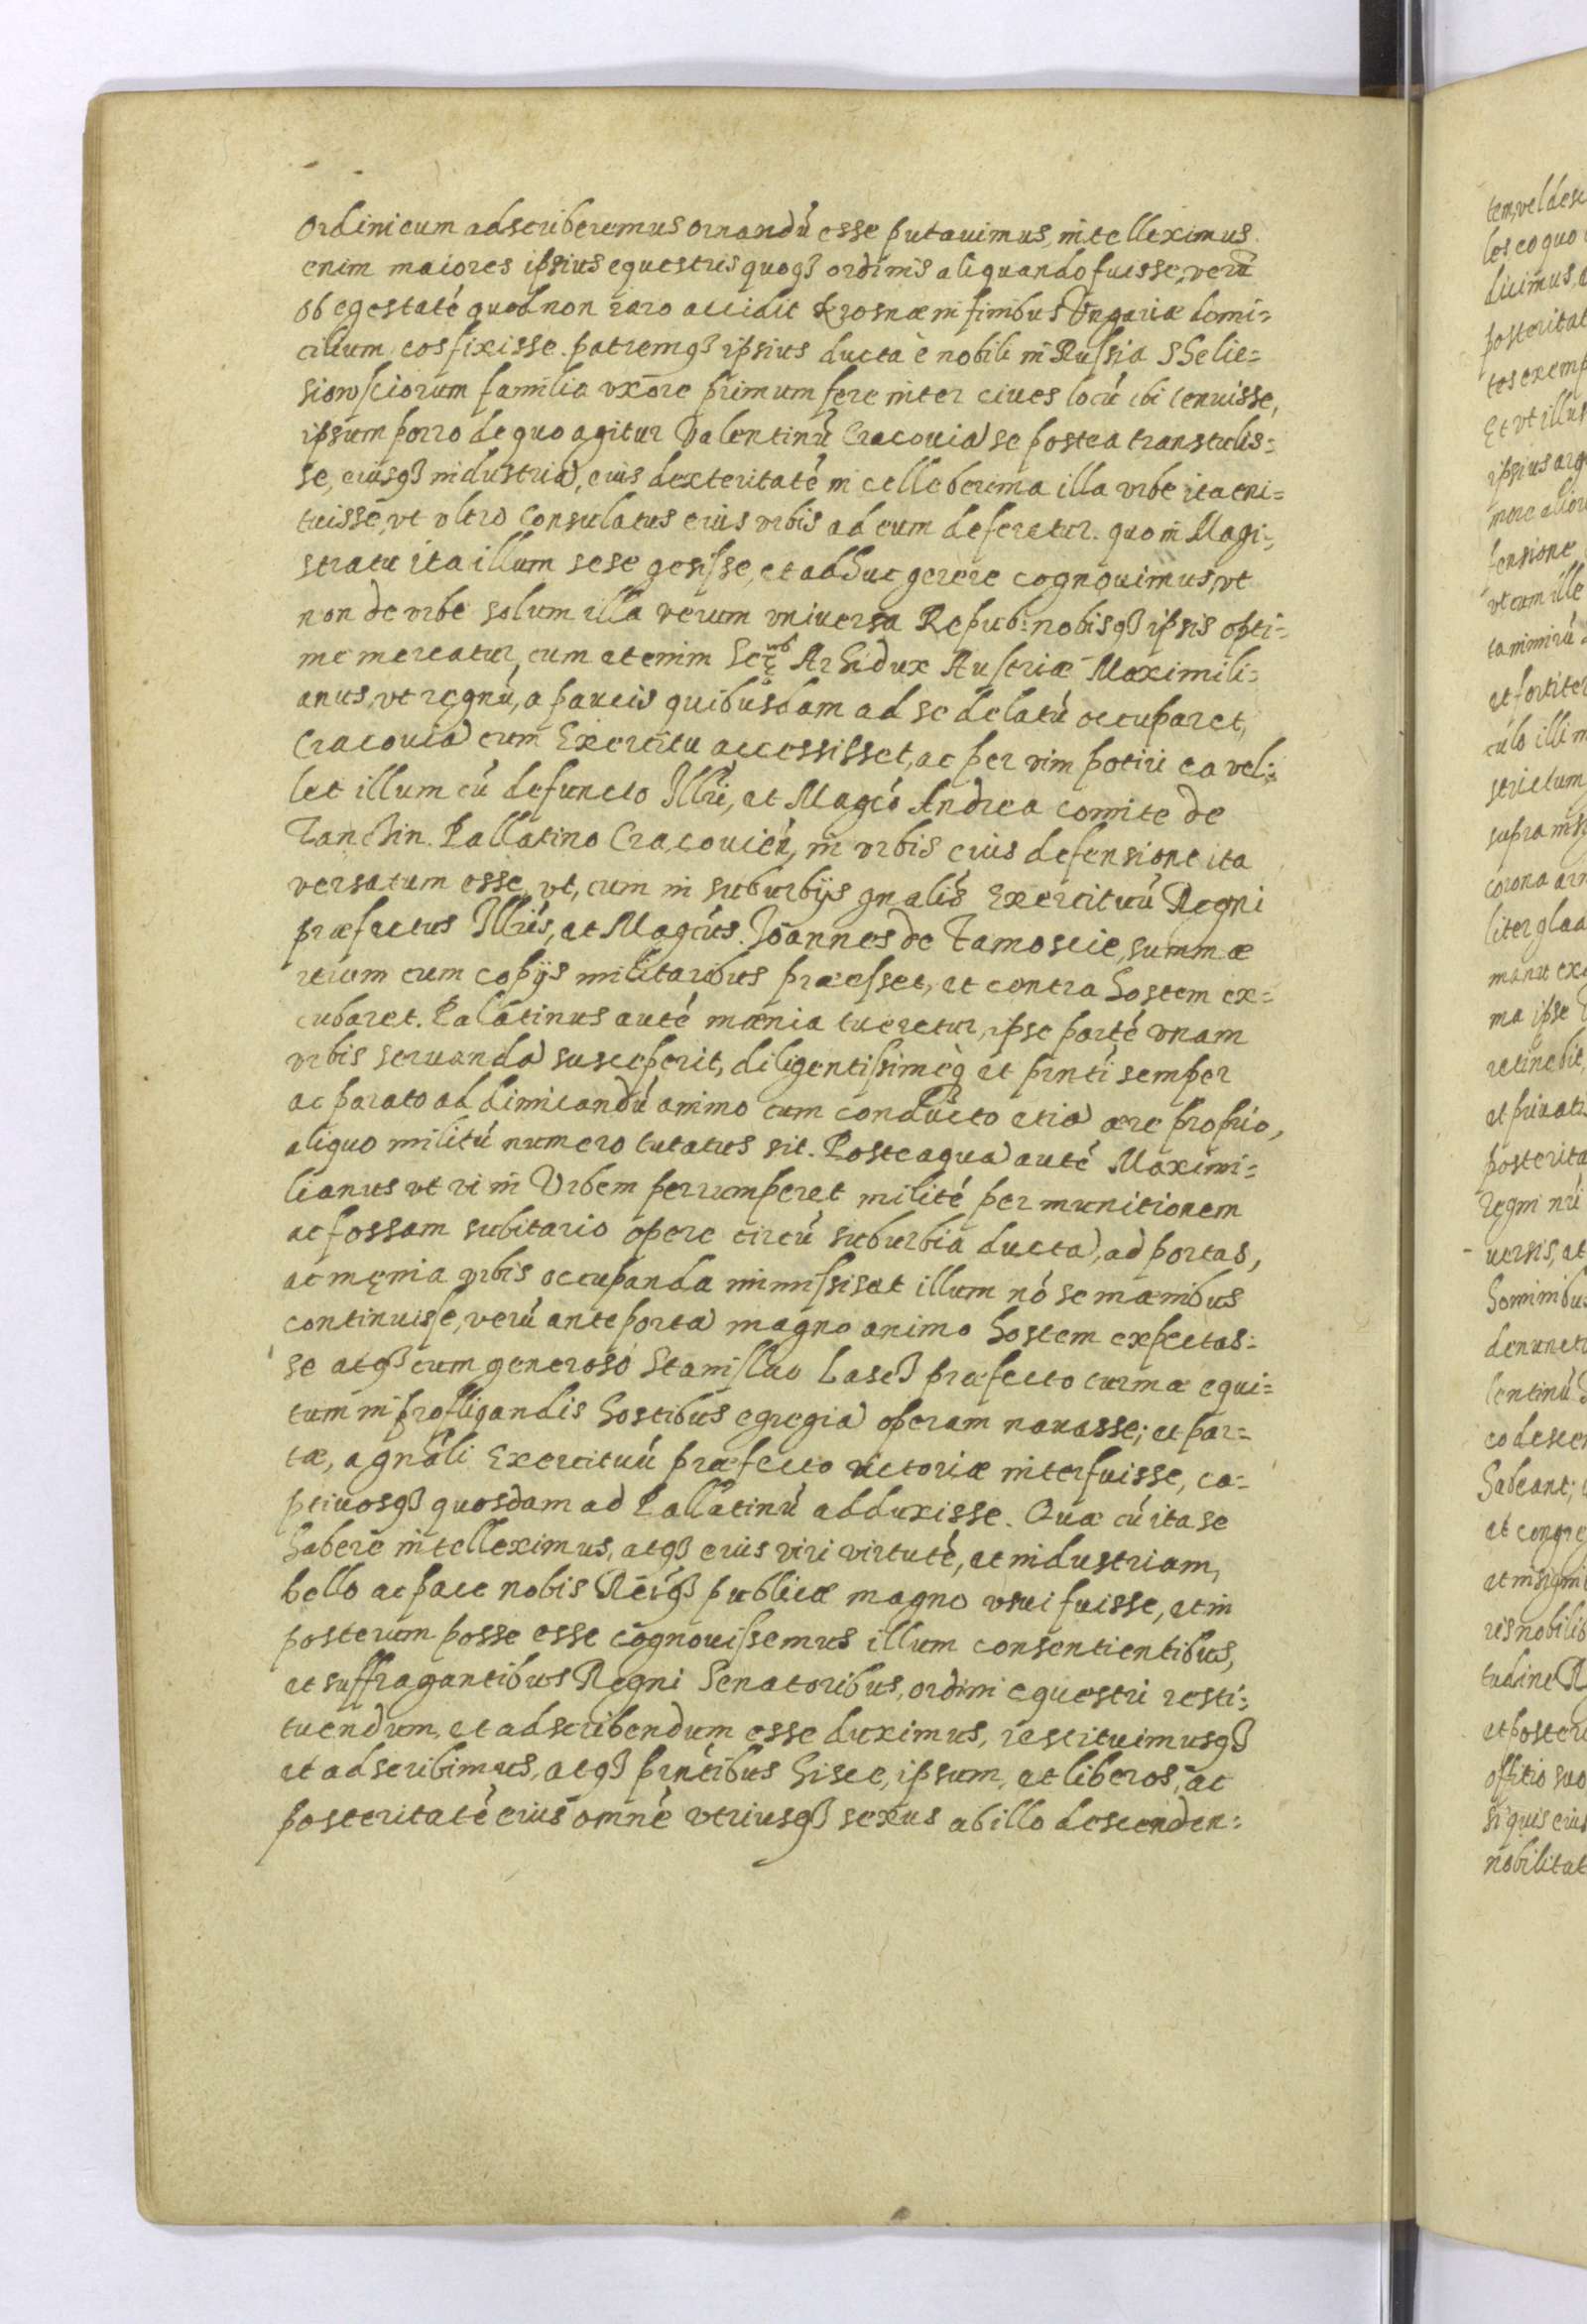 Ordini eum adscriberemus ornandú esse putauimus, intelleximus
enim maiores ipsius equestris quoqȝ ordinis aliquando fuisse, verū
ob egestaté quod non raro accidit Krosnæ in finibus Vngariæ domi=
cilium eos fixisse. patremqȝ ipsius ducta è nobili in Russia Shelie=
siowsciorum familia vxore primum fere inter ciues locú ibi tenuisse,
ipsum porro de quo agitur Valentinú Cracouiā se postea transtulis=
se, eiusqȝ industriā, eius dexteritaté in celleberima illa vrbe ita eni=
tuisse, vt vltro Consulatus eius vrbis ad eum deferetur. quo in Magi=
stratu ita illum sese gesisse, et adhuc gerere cognouimus, vt
non de vrbe solum illa verum vniuersa Repub: nobisqȝ ipsis opti=
me mereatur, cum etenim Arhidux Austriæ Maximili=
anus, vt regnú, a paucis quibusdam ad se delatú occuparet,
Cracouiā cum Exercitu accessisset, ac per vim potiri ea vel=
let illum cú defuncto Illri, et Magcó Andrea comite de
Tanchin. Pallatino Cracouień, in vrbis eius defensione ita
versatum esse, vt, cum in suburbijs gnalis Exercituú Regni
præfectus Illris, et Magcús. Joannes de Zamoscie, summæ
rerum cum copijs militaribus præesset, et contra hostem ex=
cubaret. Palatinus auté mœnia tueretur, ipse porté vnam
vrbis seruandā susceperit, diligentissimeq et prnti semper
ac parato ad dimicandú animo cum conducto etiā ære proprio,
aliquo militú numero tutatus sit. Posteaquā auté Maximi=
lianus vt vi in Vrbem perrumperet milité per munitionem
ac fossam subitario opere circú suburbia ductā, ad portas,
ac męnia vrbis occupanda immissisat illum nó se mænibus
continuisse, verú ante portā magno animo hostem expectas=
se atqȝ cum generoso Stanislao Lasch præfecto turmæ equi=
tum in profligandis hostibus egregiā operam nauasse; et par=
tæ, a gnáli Exercituú præfecto victoriæ interfuisse, ca=
ptiuosqȝ quosdam ad Pallatinú adduxisse. Quæ cú ita se
habere intelleximus, atqȝ eius viri virtuté, et industriam,
bello ac pace nobis Reiqȝ publicæ magno vsui fuisse, et in
posterum posse esse cognouissemus illum consentientibus,
et suffragantibus Regni Senatoribus, ordini equestri resti=
tuendum, et adscribendum esse duximus, restituimusqȝ
et adscribimus, atqȝ prntibus hisce, ipsum, et liberos, ac
posteritaté eius omné vtriusqȝ sexus ab illo descenden=